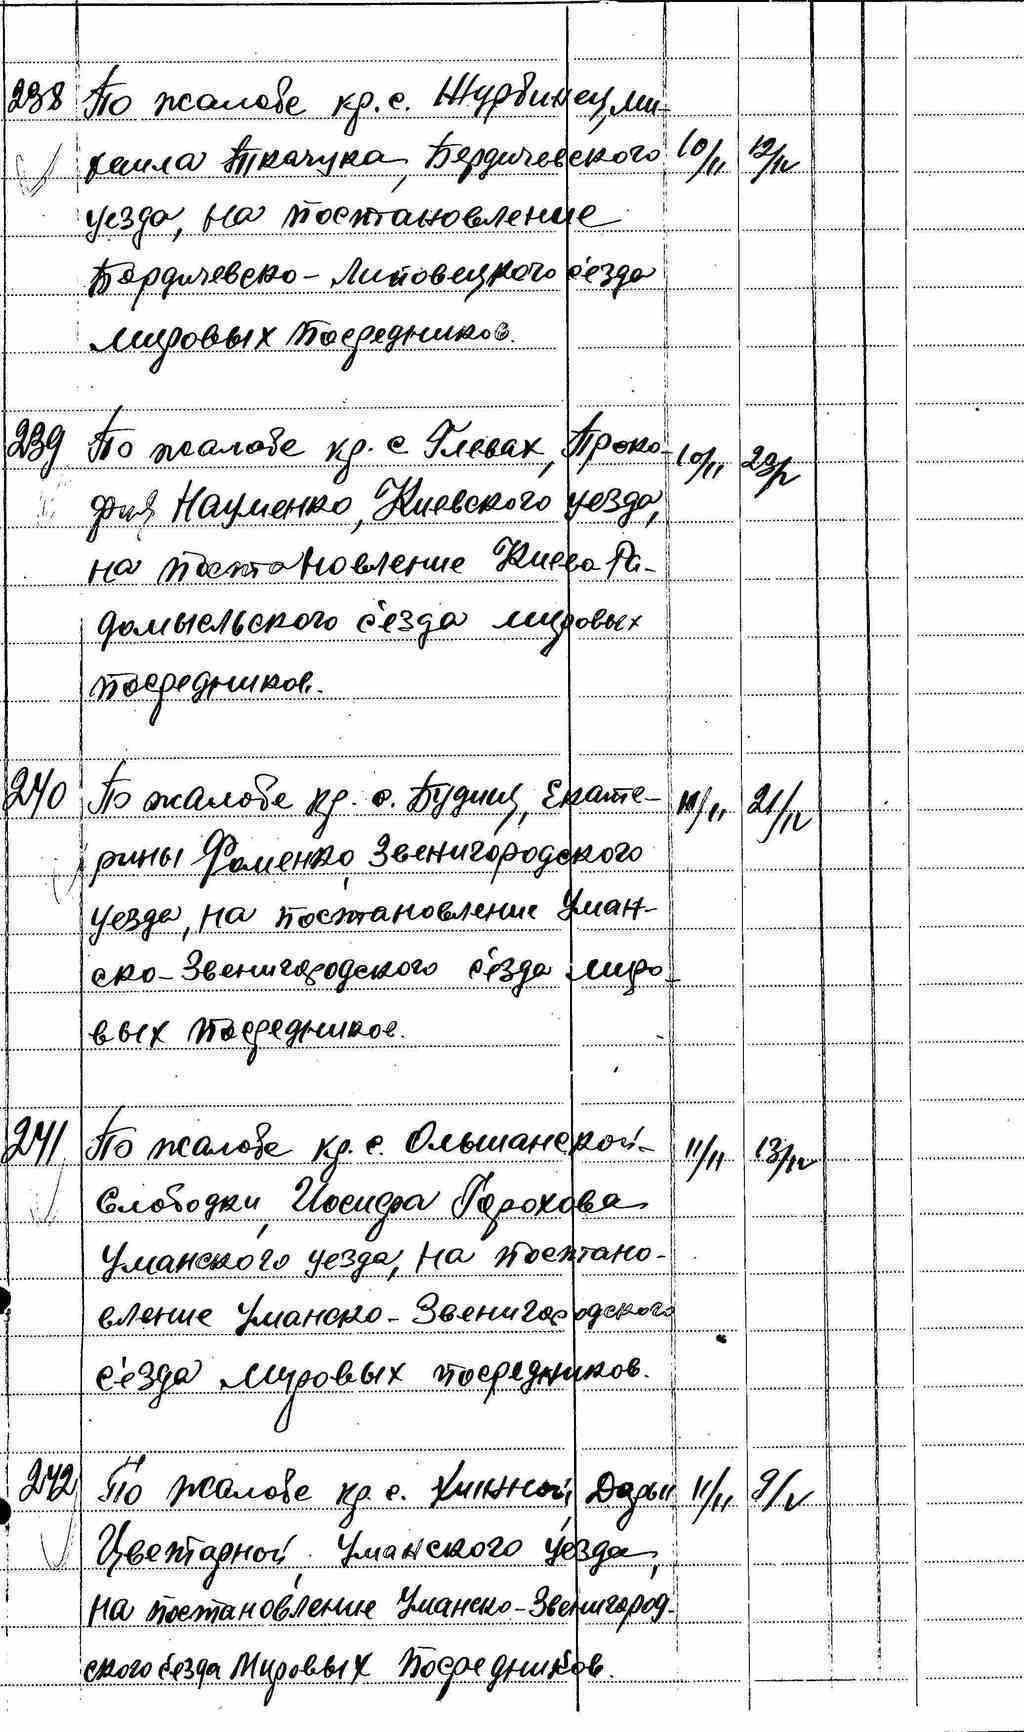 238 По жалобе кр. с. Журбинец, Ми-
хаила Ткачука, Бердичевского 10/II 12/IV
уезда, на постановление
Бердичевско-Липовецкого с'езда
мировых посредников.
239 По жалобе кр. с. Глевах, Проко- 10/II 23/V
фия Науменко, Киевского уезда,
на постановление Киево-Ра-
домысльского с'езда мировых
посредников.
240 По жалобе кр. с. Будищ, Екате- 10/II 21/IV
рины Фоменко, Звенигородского
уезда, на постановление Уман-
ско-Звенигородского с'езда миро-
вых посредников.
241 По жалобе кр. с. Ольшанской- 11/II 13/IV
Слободки, Иосифа Горохова
Уманского уезда, на постано-
вление Уманско-Звенигородского
с'езда мировых посредников.
242 По жалобе кр. с. Хижной, Дарьи 11/II 9/V
Цвектарной, Уманского уезда,
на постановление Уманско-Звенигород-
ского с'езда Мировых Посредников.